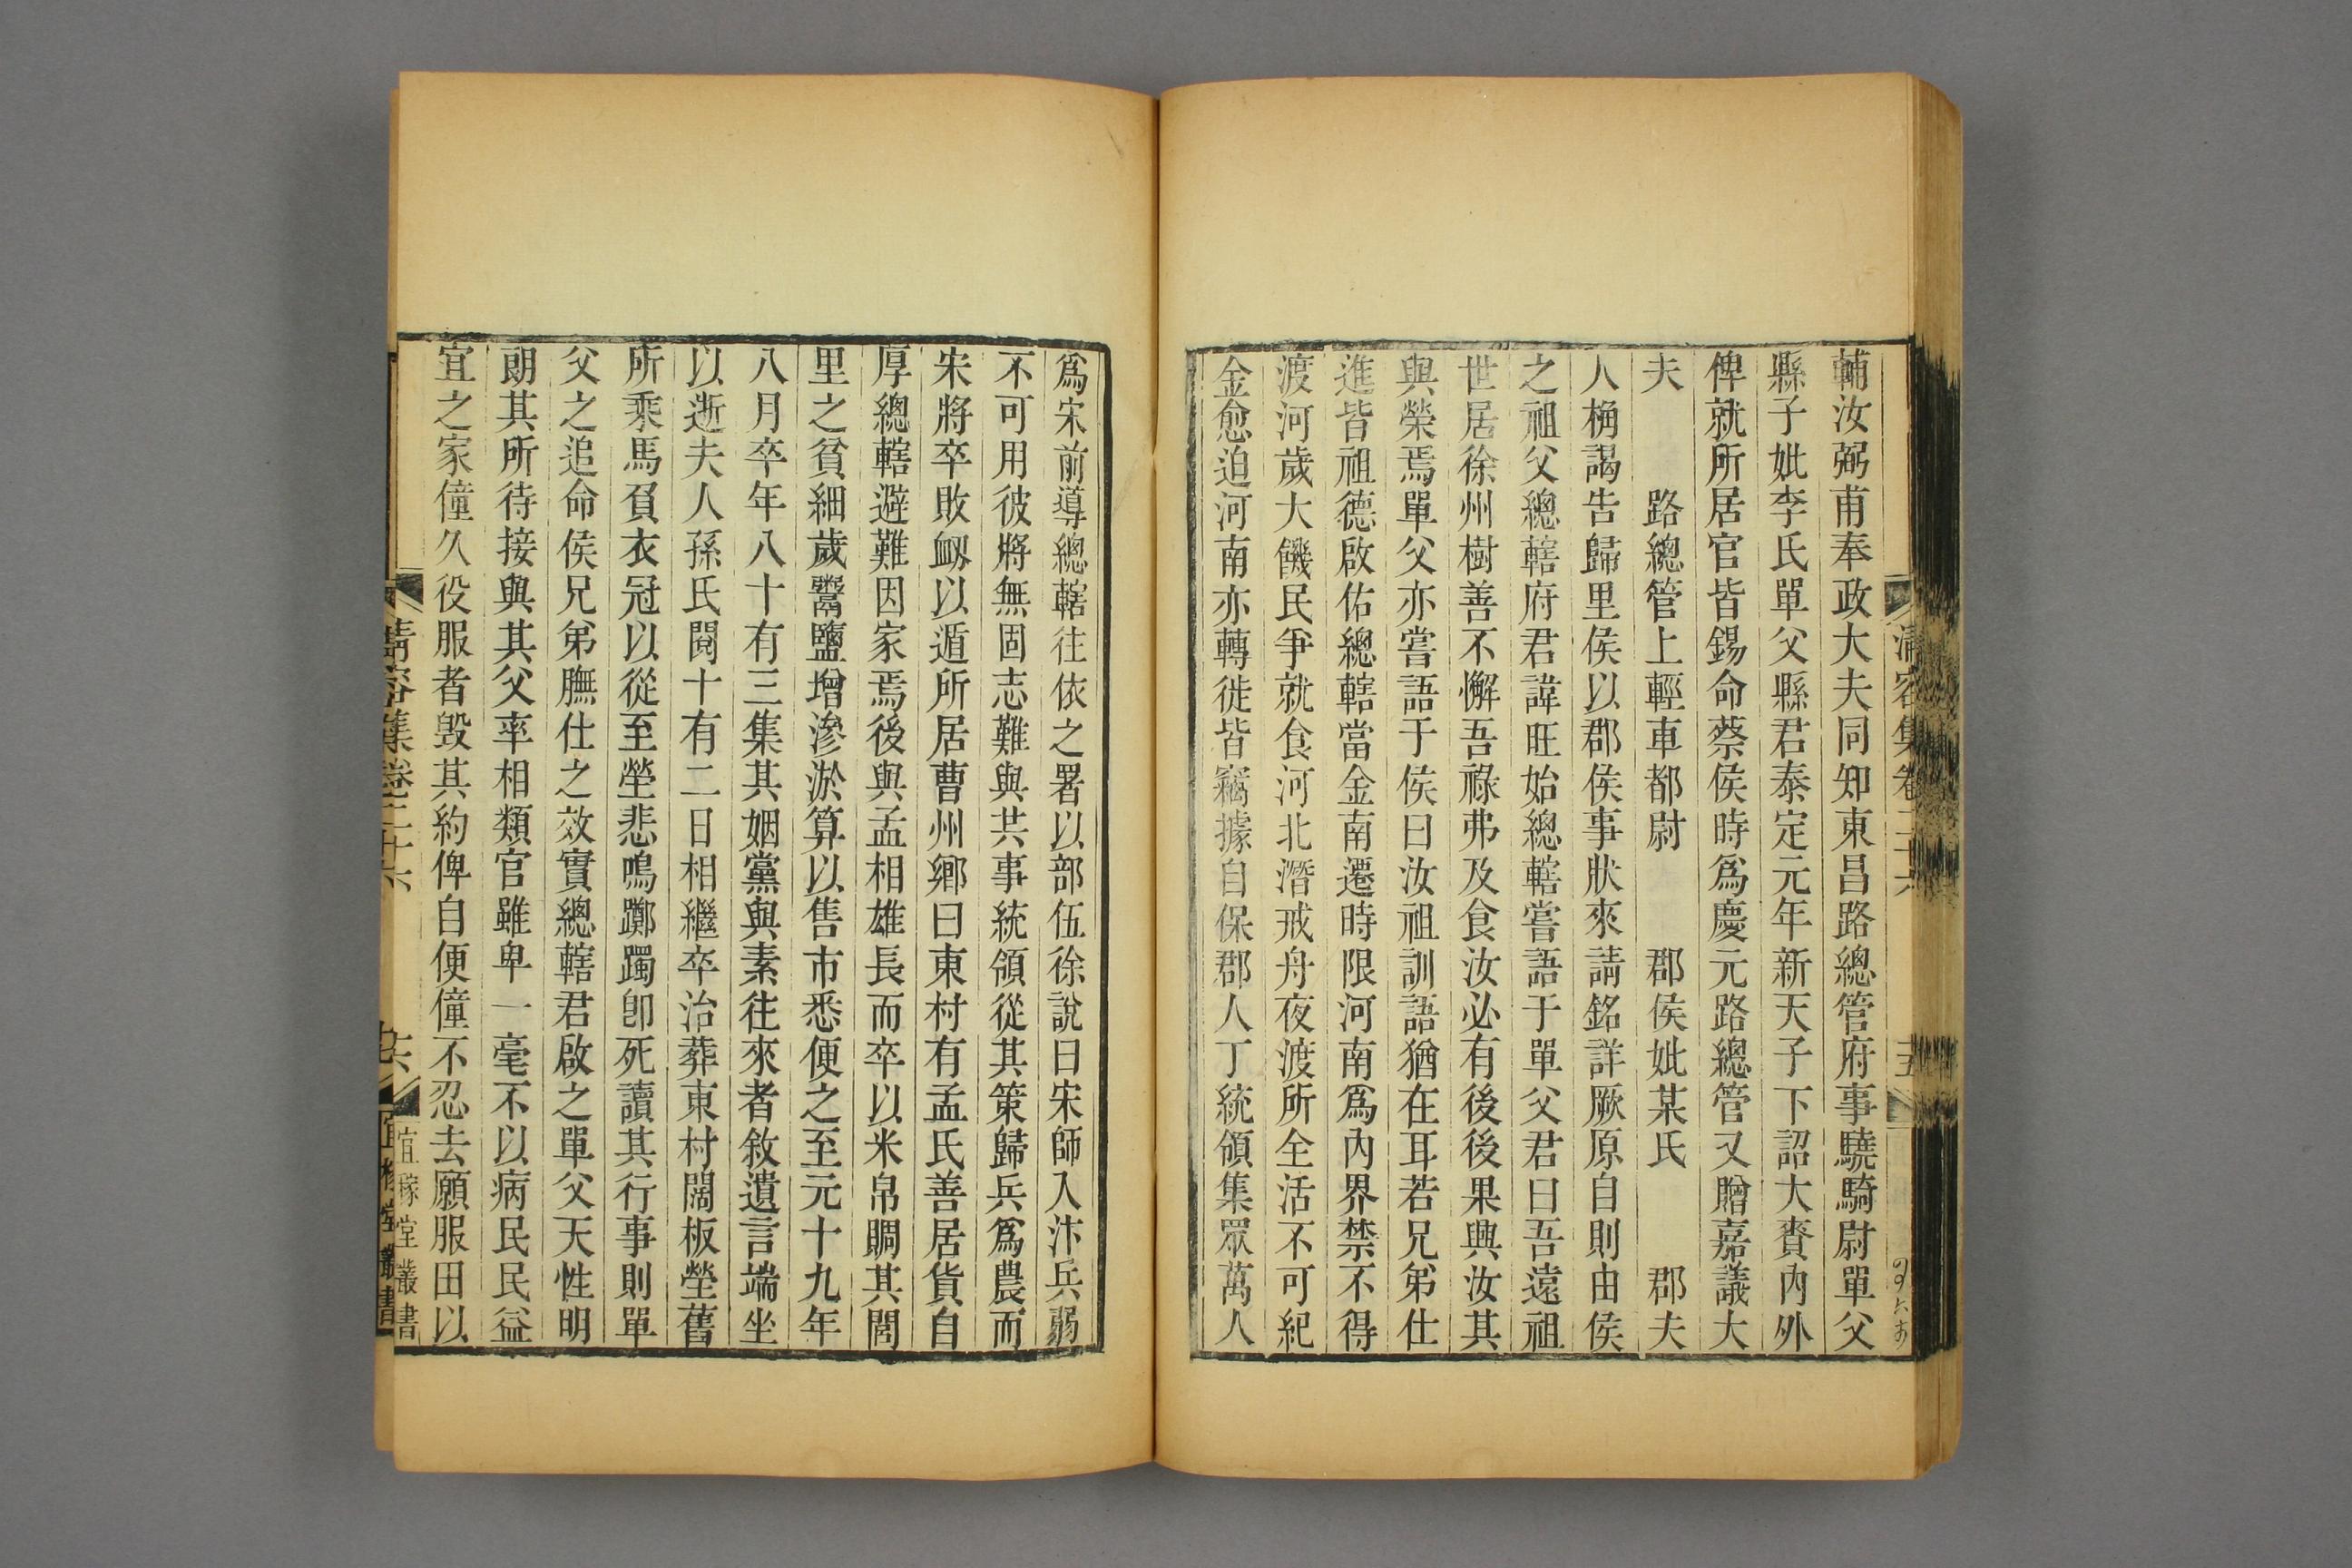 清容集卷二十六 十五
輔汝弼甫奉政大夫同知東昌路總管府事驍騎尉單父
縣子妣李氏單父縣君泰定元年新天子下詔大賚內外
俾就所居官皆錫命蔡侯時爲慶元路總管又贈嘉議大
夫 路總管上輕車都尉 郡侯妣某氏 郡夫
人桷謁告歸里侯以郡侯事狀來請銘詳厥原自則由侯
之祖父總轄府君諱旺始總轄嘗語于單父君曰吾遠祖
世居徐州樹善不懈吾祿弗及食汝必有後後果興汝其
與榮焉單父亦嘗語于侯曰汝祖訓語猶在耳若兄弟仕
進皆祖德啟佑總轄當金南遷時限河南爲內界禁不得
渡河歲大饑民爭就食河北潛戒舟夜渡所全活不可紀
金愈迫河南亦轉徙皆竊據自保郡人丁統領集眾萬人
爲宋前導總轄往依之署以部伍徐說曰宋師入汴兵弱
不可用彼將無固志難與共事統領從其策歸兵爲農而
宋將卒敗衂以遁所居曹州鄉曰東村有孟氏善居貨自
厚總轄避難因家焉後與孟相雄長而卒以米帛賙其閭
里之貧細歲鬻鹽增滲淤算以售市悉便之至元十九年
八月卒年八十有三集其姻黨與素往來者敘遺言端坐
以逝夫人孫氏閱十有二日相繼卒治葬東村闊板塋舊
所乘馬負衣冠以從至塋悲鳴躑躅卽死讀其行事則單
父之追命侯兄弟膴仕之效實總轄君啟之單父天性明
朗其所待接與其父率相類官雖卑一毫不以病民民益
宜之家僮久役服者毀其約俾自便僮不忍去願服田以
清容集卷二十六 十六 宜稼堂叢書